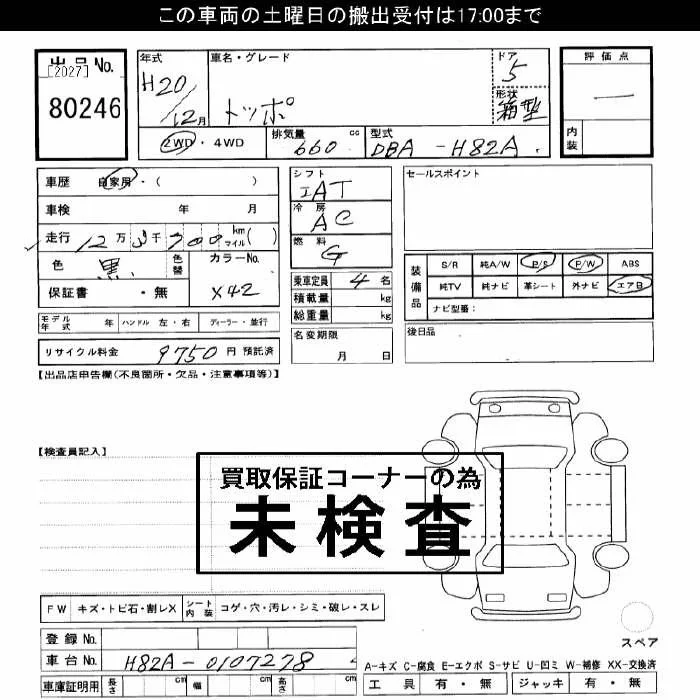 この車両の土曜日の搬出受付は17:00まで
出品No.
[2027]
80246
年式
H20/12月
車名・グレード
トッポ
ドア
5
形状
箱型
評価点
—
内装
2WD・4WD
排気量
660 cc
型式
DBA-H82A
車歴 自家用・( )
車検 年 月
走行 12万3千700 km マイル( )
色 黒
色替
カラーNo.
X42
保証書 ・無
モデル年式 年 ハンドル 左・右 ディーラー・並行
リサイクル料金 9750円 預託済
シフト
AT
冷房
AC
燃料
G
乗車定員 4名
積載量 kg
総重量 kg
名変期限
月 日
セールスポイント
装備品
S/R 純A/W P/S P/W ABS
純TV 純ナビ 革シート 外ナビ エアB
ナビ型番：
後日品
【出品店申告欄(不良箇所・欠品・注意事項等)】
【検査員記入】
買取保証コーナーの為
未検査
FW キズ・トビ石・割レX シート内装 コゲ・穴・汚レ・シミ・破レ・スレ
登録No.
車台No. H82A-0107278
車庫証明用 長さ cm 幅 cm 高さ cm
スペア
A-キズ C-腐食 E-エクボ S-サビ U-凹ミ W-補修 XX-交換済
工具 有・無 ジャッキ 有・無